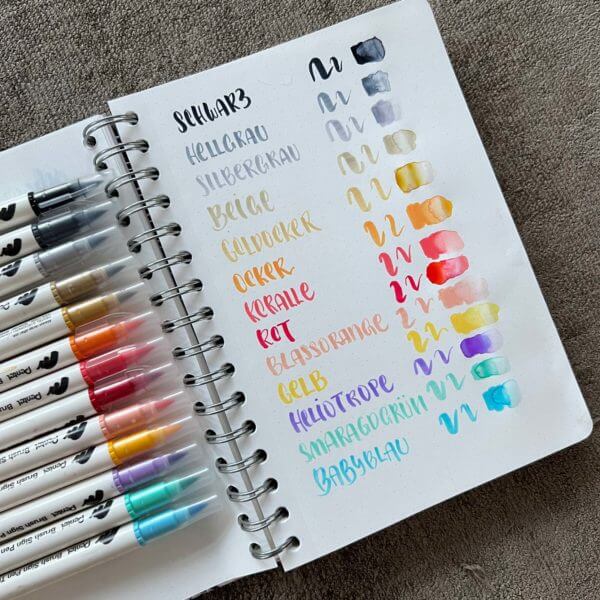 SCHWARZ
HELLGRAU
SILBERGRAU
BEIGE
GOLDOCKER
OCKER
KORALLE
ROT
BLASSORANGE
GELB
HELIOTROPE
SMARAGDGRÜN
BABYBLAU
Pentel
Pentel Brush
Pentel Brush Sign
Pentel Brush Sign Pen
Pentel Brush Sign Pen
Pentel Brush Sign Pen
Pentel Brush Sign Pen